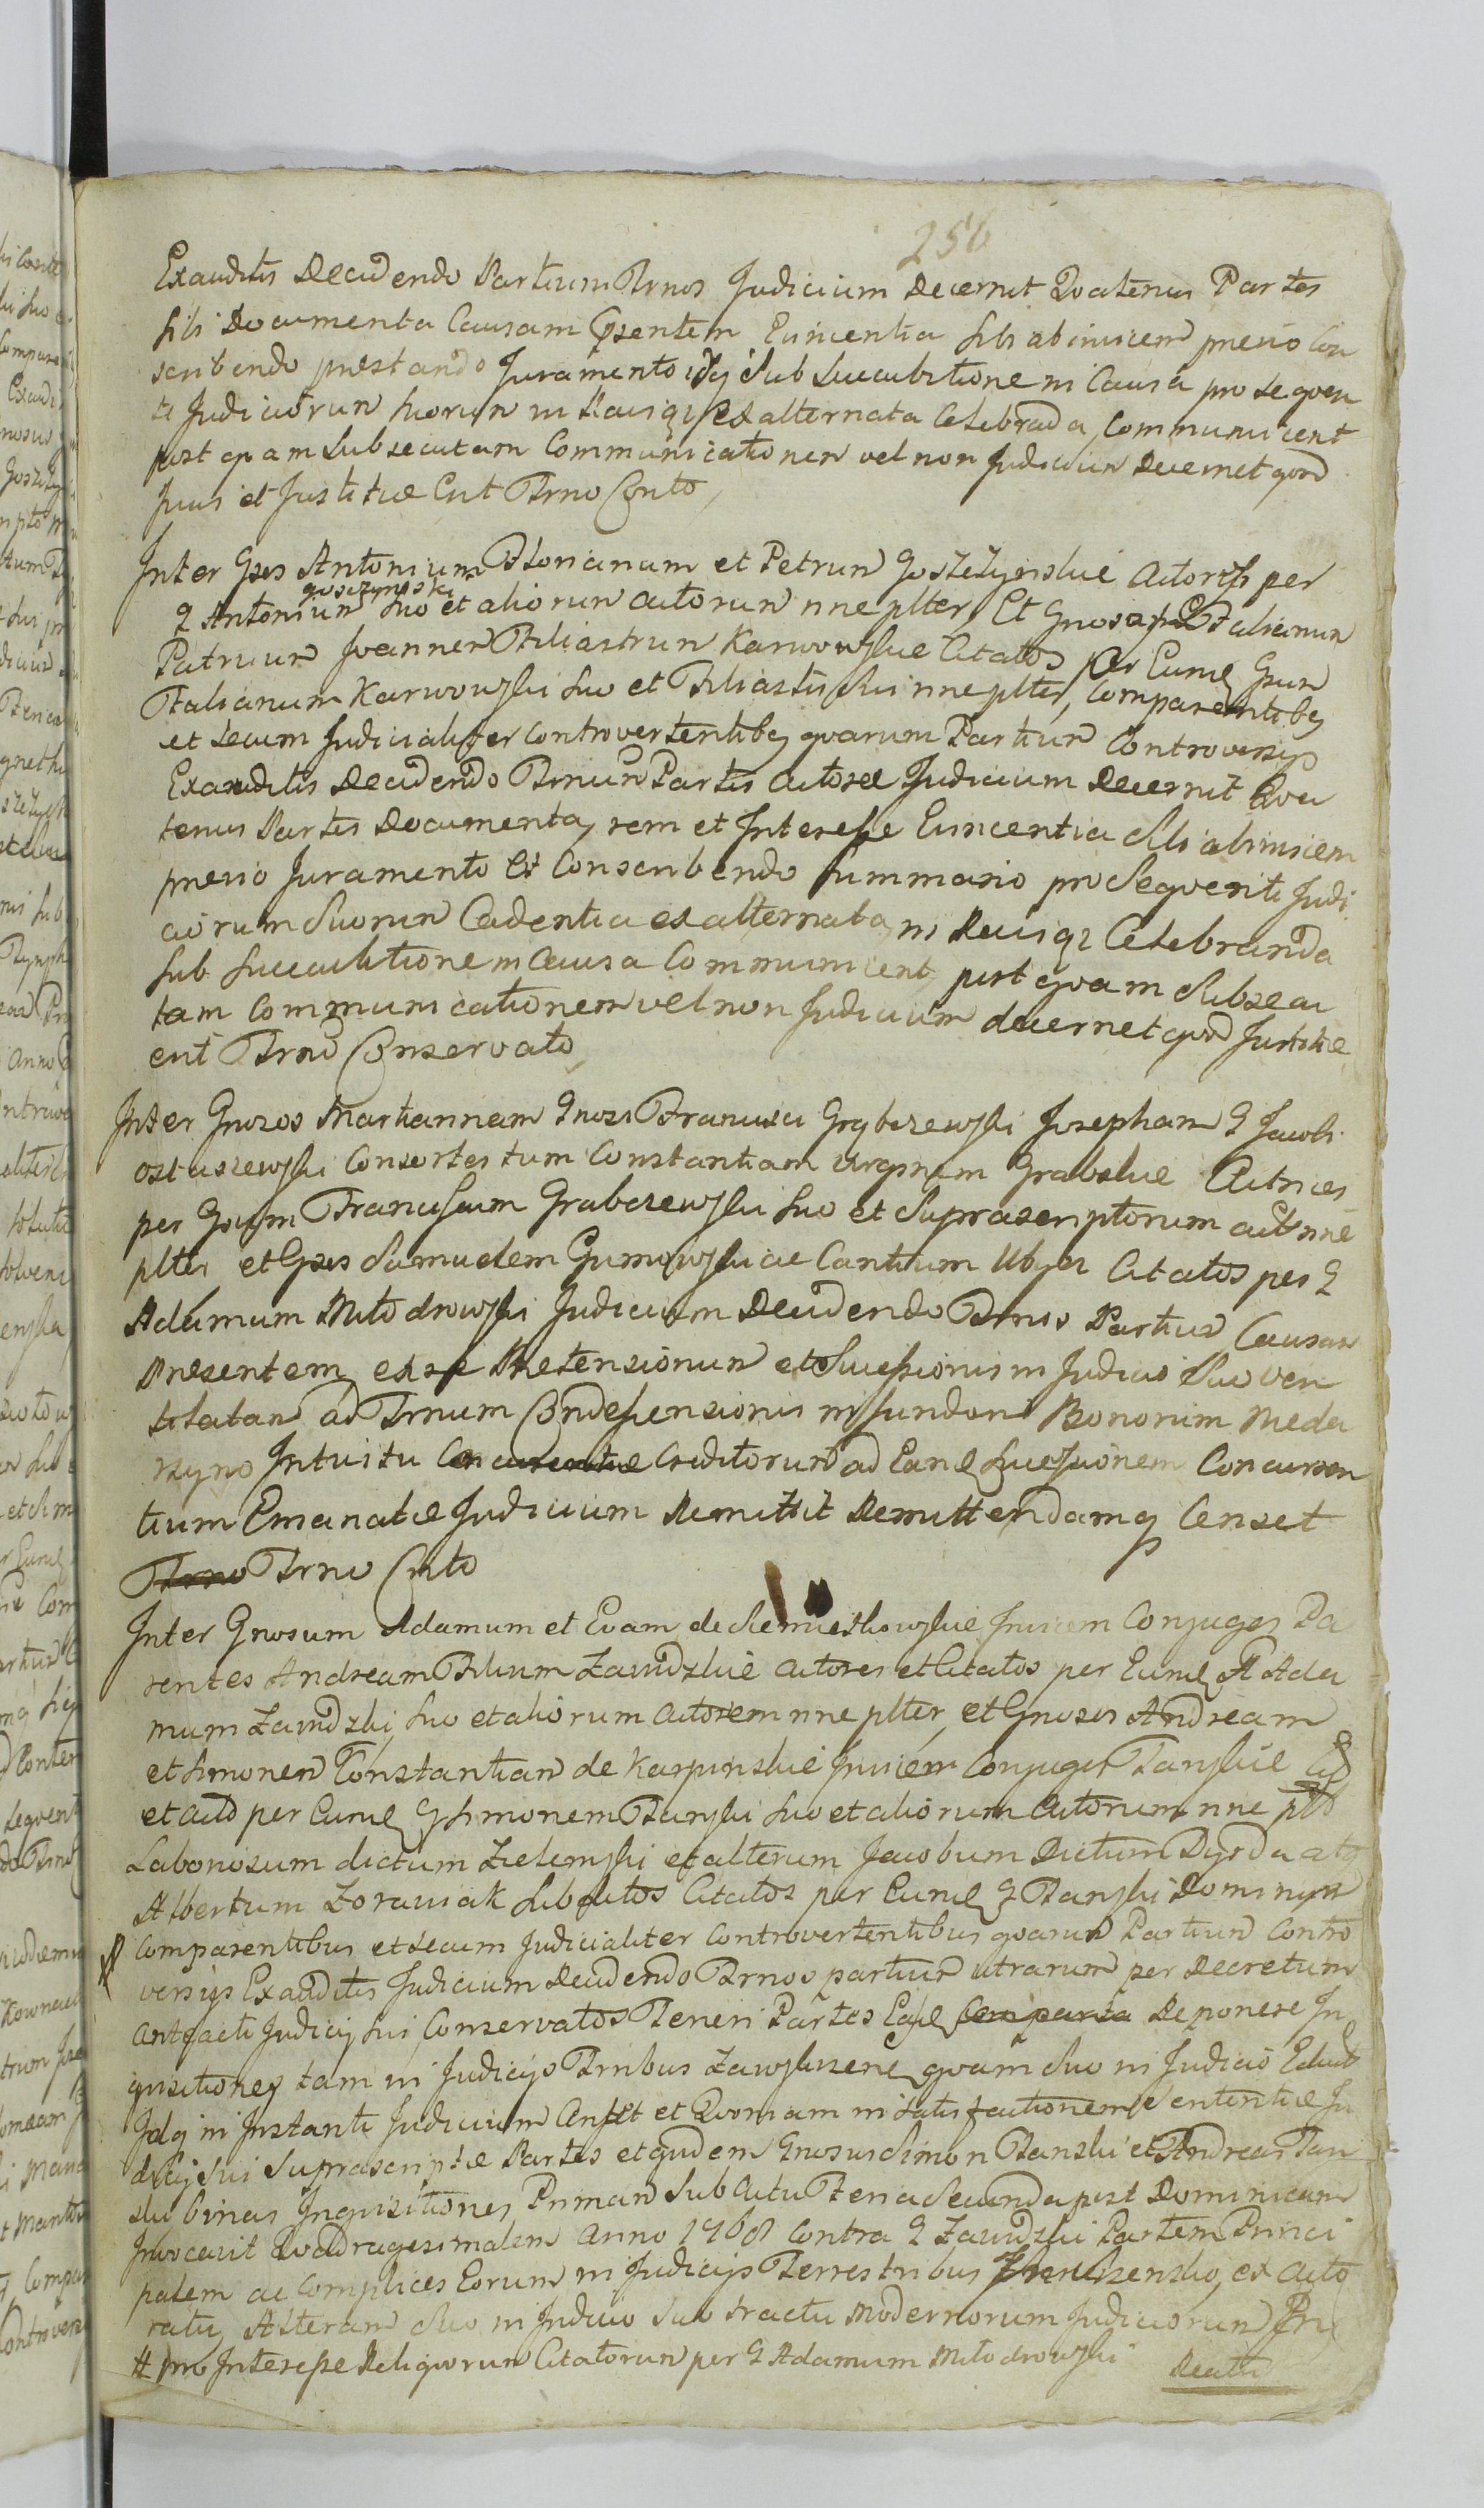 250
Exauditis Decidendo Partium Trnos Judicium Decernit Qvatenus Partes
sibi Documenta Causam Pntem Evincentia sibi ab invicem previo Con
scribendo prestando Juramento idq Sub Succubitione in Causa pro seqven
ti Judiciorum suorum in ex alternata Celebrada Communicent
post qvam Subsecutam Communicationem vel non Judicium Decernet qvod
Juris et Justitiæ Erit Trno Consto,
Inter Gsos Antonium Florianum et Petrum Goszczynskie Actores per
goszczynski
G Antonium suo et aliorum actorum nne plter, Et Gnosos Italianum
Patruum Joannem Filiastrum Karwowskie Citatos per Eund Gsum
Italianum Karwowski suo et Filiastri sui nne plter, Comparentibq
et secum Judicialiter Controvertentibq qvarum Partium Controversijs
Exauditis Decidendo Trnum Partis Actoreæ Judicium Decernit Qva
tenus Partes Documenta, rem et Interesse Evincentia Sibi ab invicem
previo Juramento et Conscribendo Summario pro Seqventi Judi
ciorum Suorum Cadentia ex alternata, in Celebranda
sub Succubitione in Causa Communicent, post qvam Subsecu
tam Communicationem vel non Judicium decernet qvod Justitiæ
erit Trno Conservato,
Inter Gnosos Mariannam Gnosi Francisci Grabczewski Josepham G Jacobi
Ostaszewski Consortes tum Constantiam virginem Grabskie Actrices
per Gsum Franciscum Grabczewski suo et Suprascriptorum act nne
plter et Gsos Samuelem Gumowski ac Citatos per G
Adamum Mlodrowski Judicium Decidendo Trnos Partium Causam
Presentem, ex re Pretensionum et Successionis in Judicio Suo ven
tilatam ad Trnum Condescensionis in fundum Bonorum Meda
Intuitu Concurentiæ Creditorum ad Eand Successionem Concurren
tium Emanatæ Judicium Remittit Remittendamq Censet
Trno Trno Consto
Inter Gnosum Adamum et Evam de Invicem Conjuges Pa
rentes Andream Filium Zawidzkie actores et Citatos per Eund Ada
mum Zawidzki, suo et aliorum actorem nne plter, et Gnosos Andream
et Simonem Constantiam de Karpinskie Invicem Conjuges Tanskie
et act per Eund G Simonem Tanski suo et aliorum Actorum nne plt
Laboriosum dictum Zielenski et alterum Jacobum Dictum Dyrda atq
Albertum Zorawiak Subditos Citatos per Eund G Tanski Dominum
# Comparentibus et secum Judicialiter Controvertentibus qvarum Partium Contro
versijs Exauditis Judicium Decidendo Trnos partium utrarum per Decretum
Antefacti Judicij Sui Conservatos Teneri Partes Comparta Deponere In
qvisitiones tam in Judicijs Trribus qvam Suo in Judicio
Idq in Instanti Judicium Censet et Qvoniam in satisfactionem Sententiæ Ju
dicij Sui Suprascriptæ Partes et qvidem Gnosus Simon Tanski et Andreas Tan
ski binas Inqvisitiones, Primam Sub Actu Feria Secunda post Dominicam
Invocavit Qvadragesimalem Anno 1768 Contra G Zawidzki Partem Princi
palem ac Complices Eorum in Judicijs Terrestribus ex acto
ratu, Alteram Suo in Judicio Sub tractu Modernorum Judiciorum
# pro Interesse Reliqvorum Citatorum per G Adamum Mlodrowski
Reatu